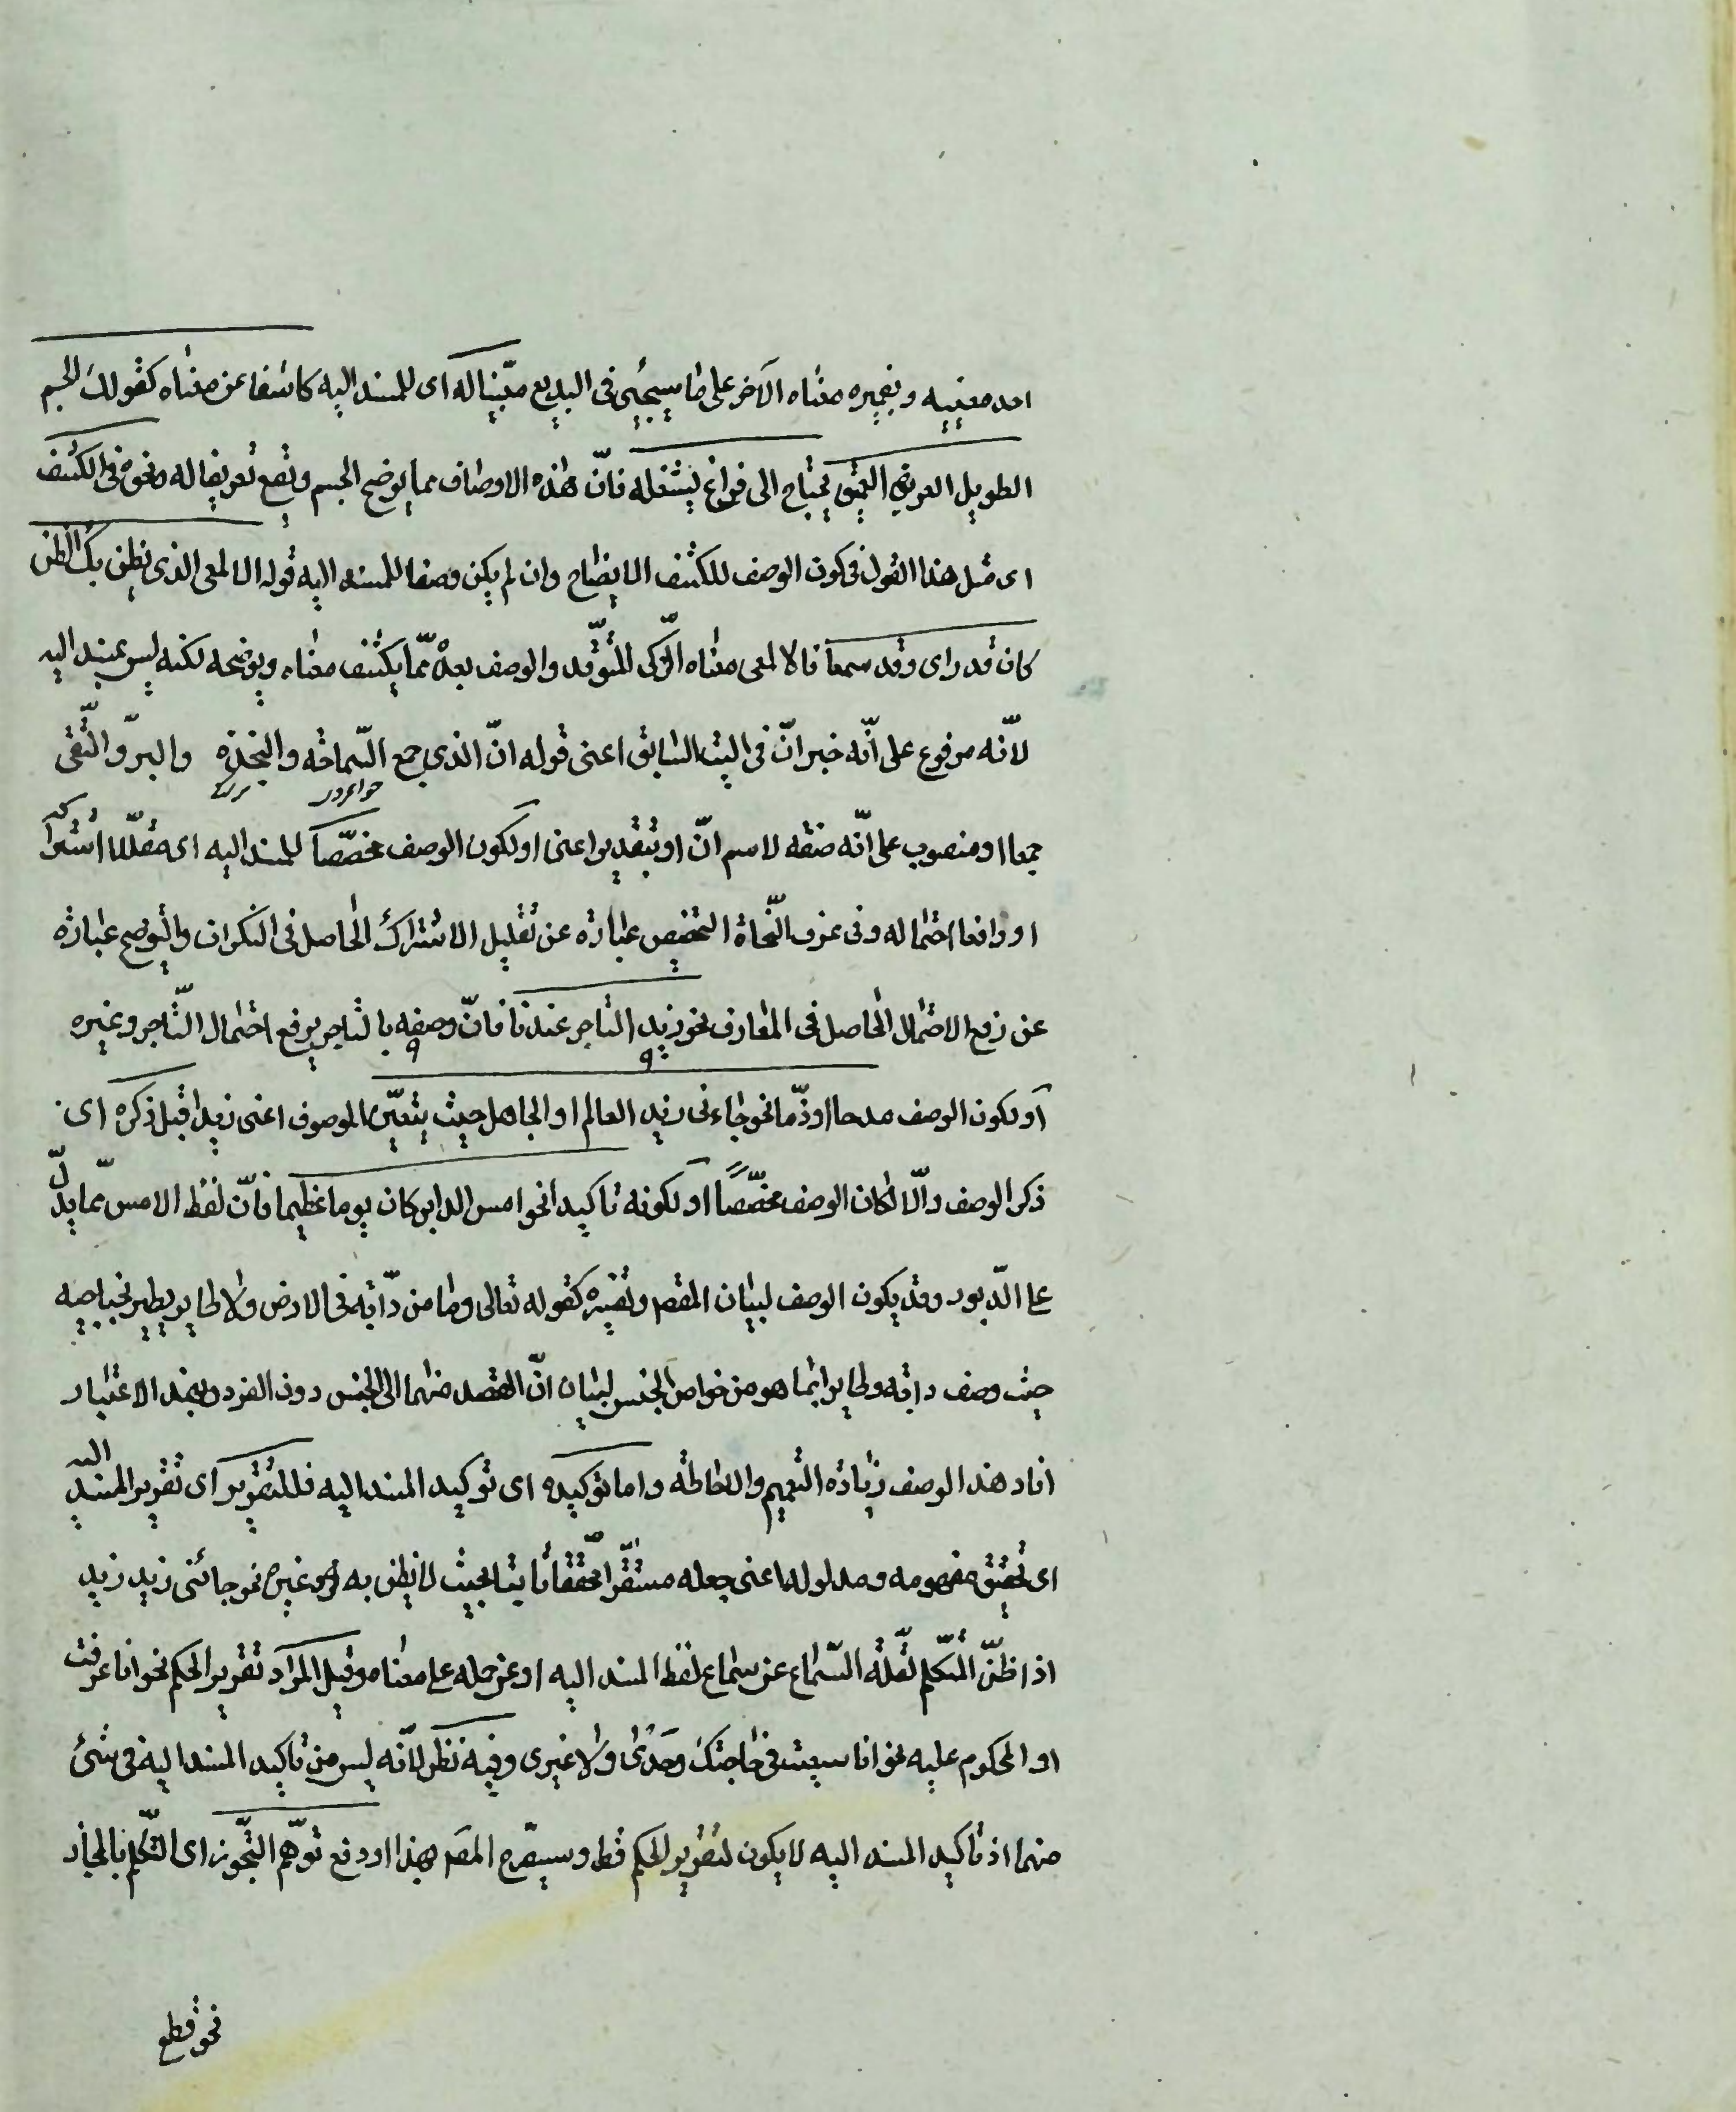 احد معنييه و بضميره معناه الآخر على ما سيجيئ فى البديع مبيّنا له اى للمسند اليه كاشفا عن معناه كقولك الجسم
الطويل العريض العميق يحتاج الى فراغ يشغله فانّ هذه الاوصاف مما يوضح الجسم و يقع تعريفا له و نحوه فى الكشف
اى مثل هذا القول فى كون الوصف للكشف الايضاح وان لم يكن وصفا للمسند اليه قوله الالمعى الذى يظن بك الظن
كان قد راى وقد سمعا فالالمعى معناه الزّكى المتوّقد والوصف بعده ممّا يكشف معناه ويوضحه لكنه ليس بمسند اليه
لانّه مرفوع على انّه خبر انّ فى البيت السّابق اعنى قوله انّ الذى جمع السّماحة والنجدة والبرّ والتّقى
جمعا او منصوب على انّه صفة لاسم انّ او بتقدير اعنى او لكون الوصف مخصّصا للمسند اليه اى مقلّلا اشتراكه
او رافعا احتماله وفى عرف النّحاة التخصيص عبارة عن تقليل الاشتراك الحاصل فى النكرات والتوضيح عبارة
عن رفع الاحتمال الحاصل فى المعارف نحو زيد التاجر عندنا فانّ وصفه بالتاجر يرفع احتمال التّاجر وغيره
او لكون الوصف مدحا او ذمّا نحو جاءنى زيد العالم او الجاهل حيث يتعيّن الموصوف اعنى زيدا قبل ذكره اى
ذكر الوصف والّا لكان الوصف مخصّصًا او لكونه تاكيدا نحو امس الدابر كان يوما عظيما فانّ لفظ الامس ممّا يدلّ
على الدّبور وقد يكون الوصف لبيان المقصود وتفسيره كقوله تعالى وما من دابّة فى الارض ولا طاير يطير بجناحيه
حيث وصف دابة وطاير بما هو من خواص الجنس لبيان انّ القصد منهما الى الجنس دون الفرد وبهذا الاعتبار
افاد هذا الوصف زيادة التعميم والاحاطة واما توكيده اى توكيد المسند اليه فللتقرير اى تقرير المسند اليه
اى تحقيق مفهومه ومدلوله اعنى جعله مستقرّا محقّقا ثابتا بحيث لا يظن به غيره نحو جائنى زيد زيد
اذا ظنّ المتكلّم غفلة السّامع عن سماع لفظ المسند اليه او عن حمله على معناه وقيل المراد تقرير الحكم نحو انا عرفت
او المحكوم عليه نحو انا سعيت فى حاجتك وحدى ولا غيرى وفيه نظر لانّه ليس من تاكيد المسند اليه فى شئ
منهما اذ تاكيد المسند اليه لا يكون لتقرير الحكم قط وسيصرّح المص بهذا او دفع توهّم التجّوز اى التّكلم بالمجاز
نحو قطع